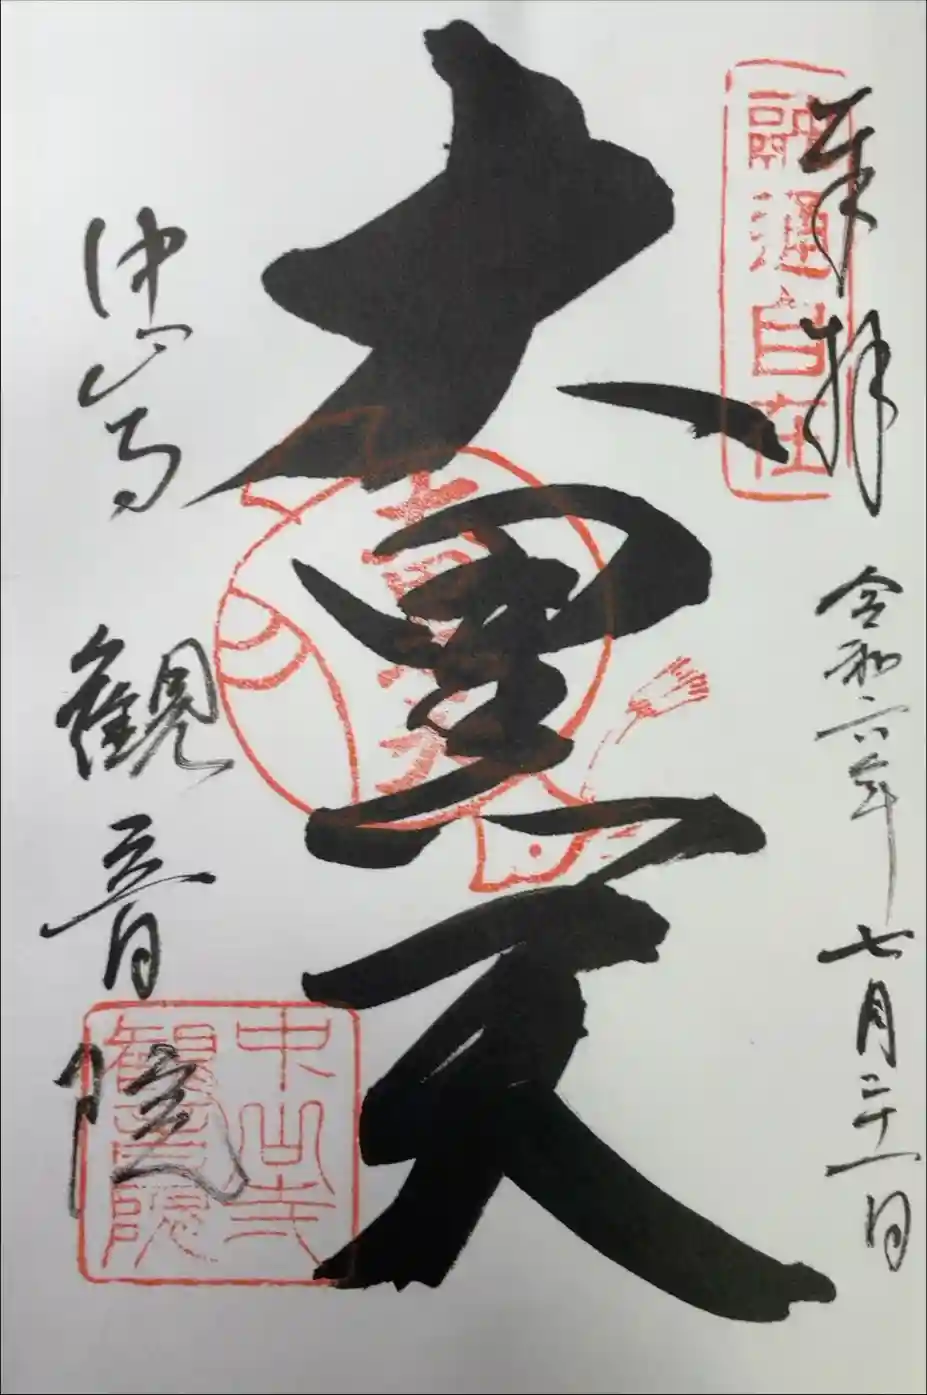 奉拝
令和六年七月二十一日
融通自在
大黒天
中山寺 観音院
中山寺
観音院